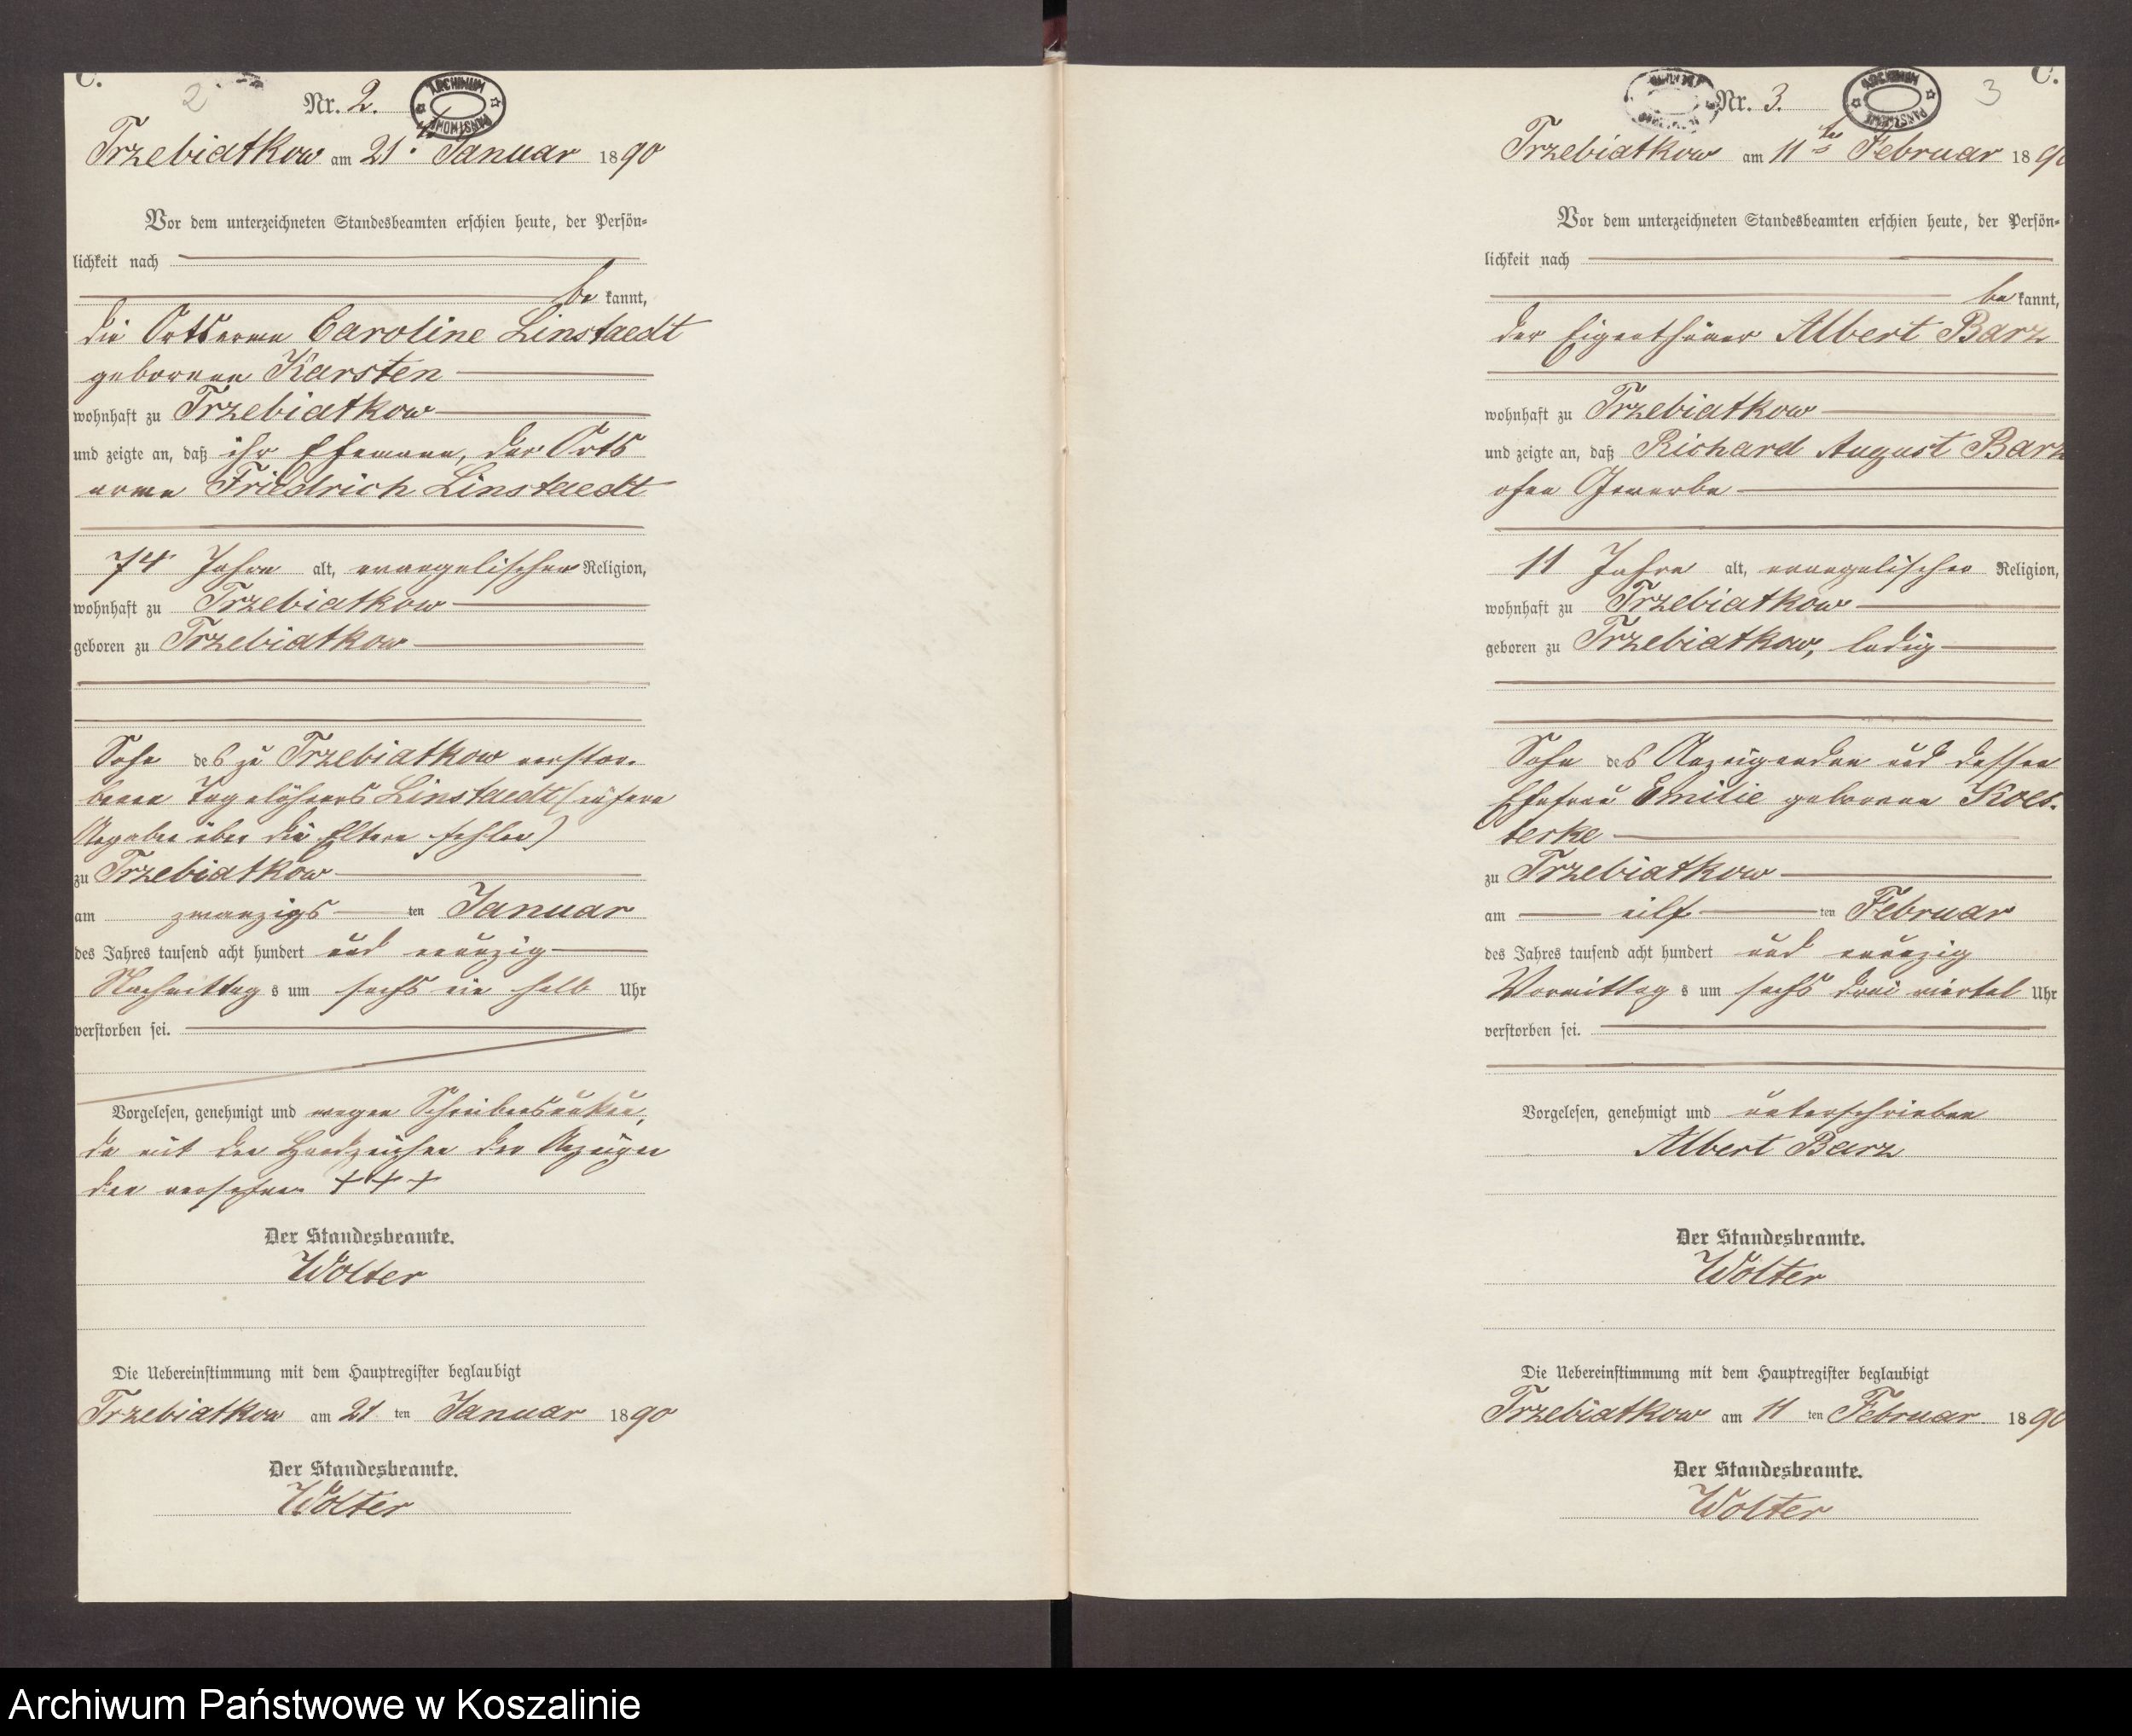 C.
2
Nr. 2.
ARCHIWUM PAŃSTWOWE
Trzebiatkow am 21. Januar 1890
Vor dem unterzeichneten Standesbeamten erschien heute, der Persön-
lichkeit nach
be kannt,
die Ortsarme Caroline Linstaedt
geborene Karsten
wohnhaft zu Trzebiatkow
und zeigte an, daß ihr Ehemann, der Orts
arme Friedrich Linstaedt
74 Jahre alt, evangelischer Religion,
wohnhaft zu Trzebiatkow
geboren zu Trzebiatkow
Sohn des zu Trzebiatkow verstor-
benen Tagelöhners Linstaedt (nähere
Angaben über die Eltern fehlen)
zu Trzebiatkow
am zwanzigs ten Januar
des Jahres tausend acht hundert und neunzig
Nachmittag s um sechs ein halb Uhr
verstorben sei.
Vorgelesen, genehmigt und wegen Schreibensunkun,
de mit den Handzeichen der Anzeigen
den versehen +++
Der Standesbeamte.
Wolter
Die Uebereinstimmung mit dem Hauptregister beglaubigt
Trzebiatkow am 21 ten Januar 1890
Der Standesbeamte.
Wolter
C.
3
Nr. 3.
ARCHIWUM PAŃSTWOWE
Trzebiatkow am 11ten Februar 1890
Vor dem unterzeichneten Standesbeamten erschien heute, der Persön-
lichkeit nach
be kannt,
der Eigenthümer Albert Barz
wohnhaft zu Trzebiatkow
und zeigte an, daß Richard August Barz
ohne Gewerbe
11 Jahre alt, evangelischer Religion,
wohnhaft zu Trzebiatkow
geboren zu Trzebiatkow, ledig
Sohn des Anzeigenden und dessen
Ehefrau Emilie geborene Koes-
terke
zu Trzebiatkow
am eilf ten Februar
des Jahres tausend acht hundert und neunzig
Vormittag s um sechs drei viertel Uhr
verstorben sei.
Vorgelesen, genehmigt und unterschrieben
Albert Barz
Der Standesbeamte.
Wolter
Die Uebereinstimmung mit dem Hauptregister beglaubigt
Trzebiatkow am 11 ten Februar 1890
Der Standesbeamte.
Wolter
Archiwum Państwowe w Koszalinie